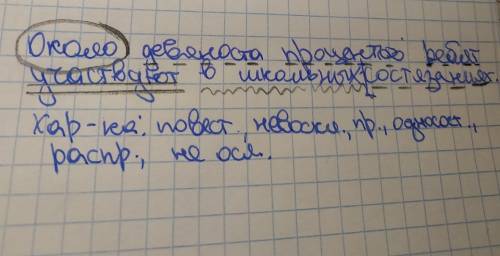 Около девяноста процентов ребят
участвует в школьных состязаниях.
Хар-ка: повест., невоскл., пр., односост.,
распр., не осл.